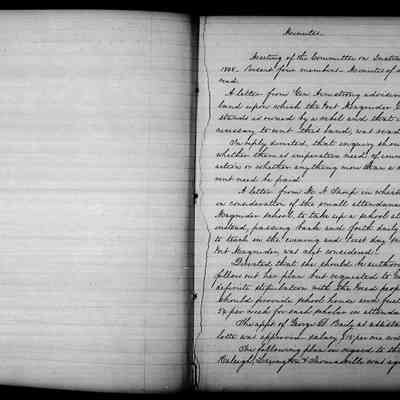 Minutes.
Meeting of the Committee on Instruc
1868. Present four members. Minutes of
read.
A letter from Gen Armstrong advis
land upon which the Fort Magruder
stands is owned by a rebel and that
necessary to rent this land, was read
Reply directed, that enquiry shou
whether there is imperative need of
or whether anything more than a
rent need be paid.
A letter from H. A. Shar in which
in consideration of the small attendance
Magruder School, to take up a school at
instead, passing back and forth daily
to teach on the evening and First day
Fort Magruder was also considered.
Directed that she should be authori
follow out her plan but requested to
definite stipulation with the Freed peop
should provide school house and fuel
per week for each scholar in attendan
The appt of George B. Baily as assista
lotte was approved salary per mo
The following plan in regard to the
Raleigh, Lexington & Thomasville was ag